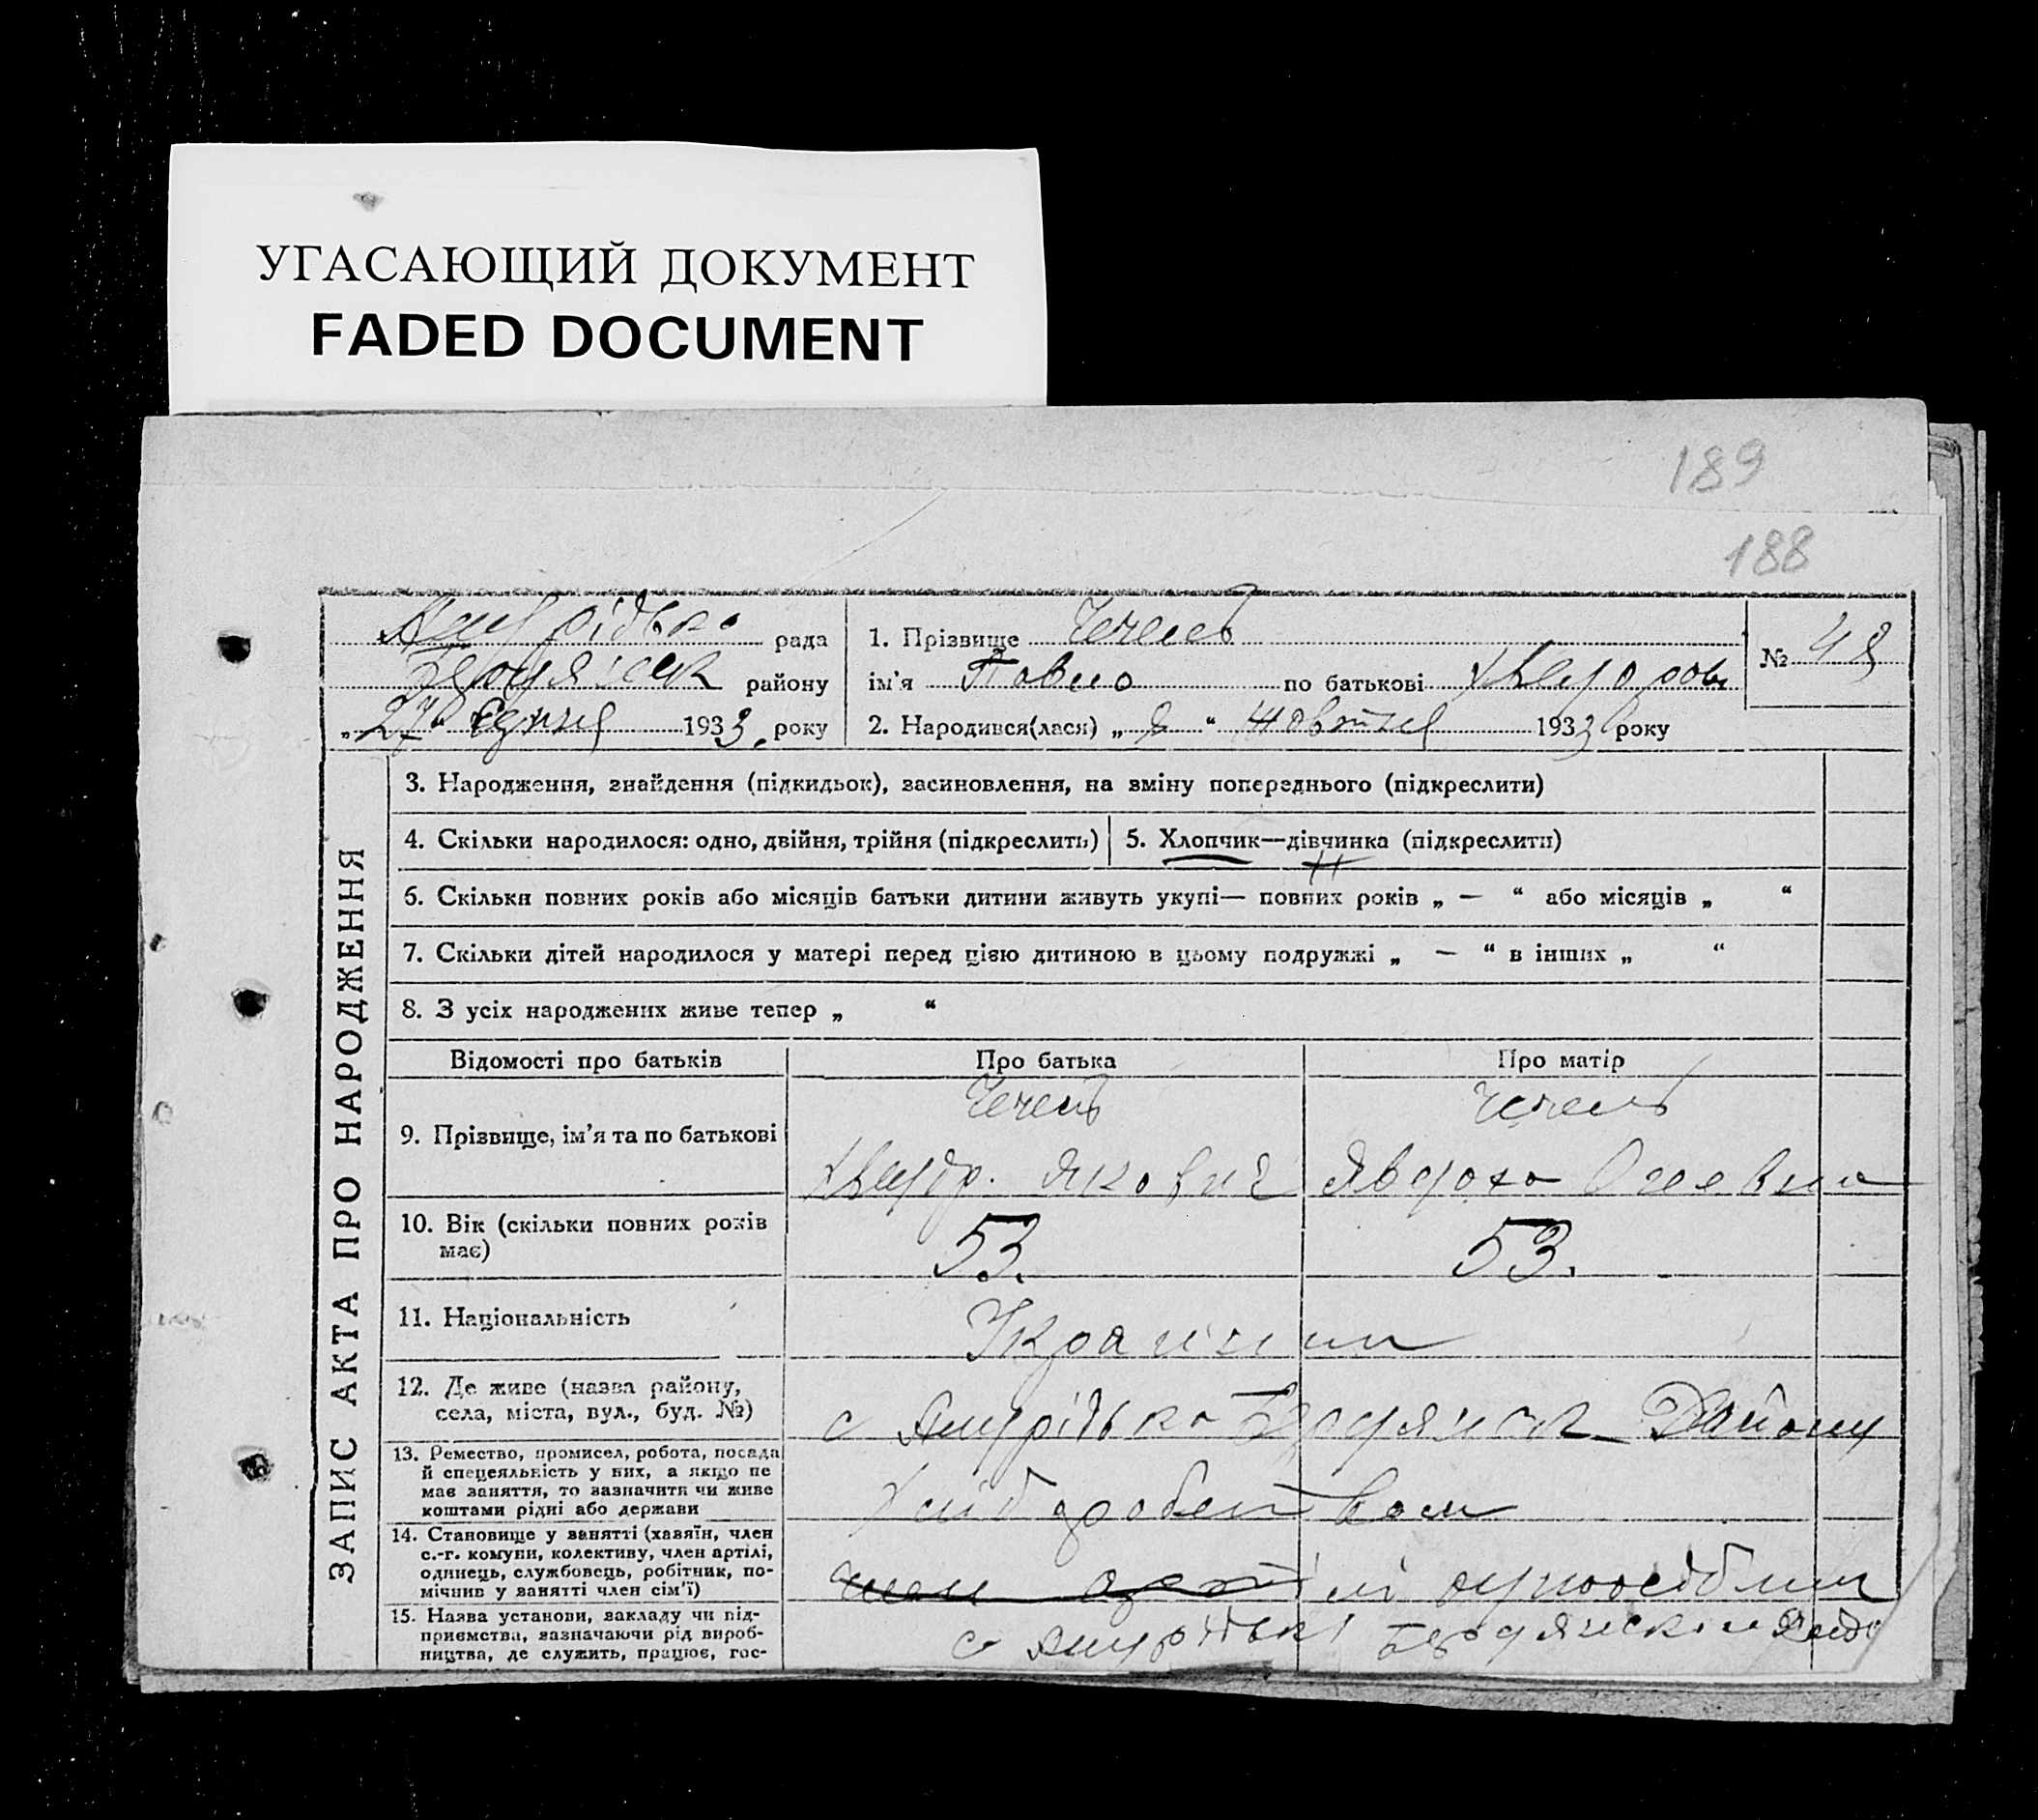 УГАСАЮЩИЙ ДОКУМЕНТ
FADED DOCUMENT
189
188
рада
району
„27“ 1933 року
1. Прізвище Чечель
ім’я Павло по батькові
2. Народився(лася) „ “ Жовтня 1933 року
№ 48
ЗАПИС АКТА ПРО НАРОДЖЕННЯ
3. Народження, знайдення (підкидьок), засиновлення, на зміну попереднього (підкреслити)
4. Скільки народилося: одно, двійня, трійня (підкреслить)
5. Хлопчик—дівчинка (підкреслити)
6. Скільки повних років або місяців батьки дитини живуть укупі— повних років „ — “ або місяців „ “
7. Скільки дітей народилося у матері перед цією дитиною в цьому подружжі „ — “ в інших „ “
8. З усіх народжених живе тепер „ “
Відомості про батьків
Про батька
Про матір
9. Прізвище, ім’я та по батькові
Чечель
Якович
Чечель
Явдоха
10. Вік (скільки повних років
має)
53.
53.
11. Національність
12. Де живе (назва району,
села, міста, вул., буд. №)
с Району
13. Ремество, промисел, робота, посада
й спецеяльність у них, а якщо не
має заняття, то зазначити чи живе
коштами рідні або держави
Хліборобством
14. Становище у занятті (хазяїн, член
с.-г. комуни, колективу, член артілі,
одинець, службовець, робітник, по-
мічник у занятті член сім’ї)
член артілі
15. Назва установи, закладу чи під-
приємства, зазначаючи рід вироб-
ництва, де служить, працює, гос-